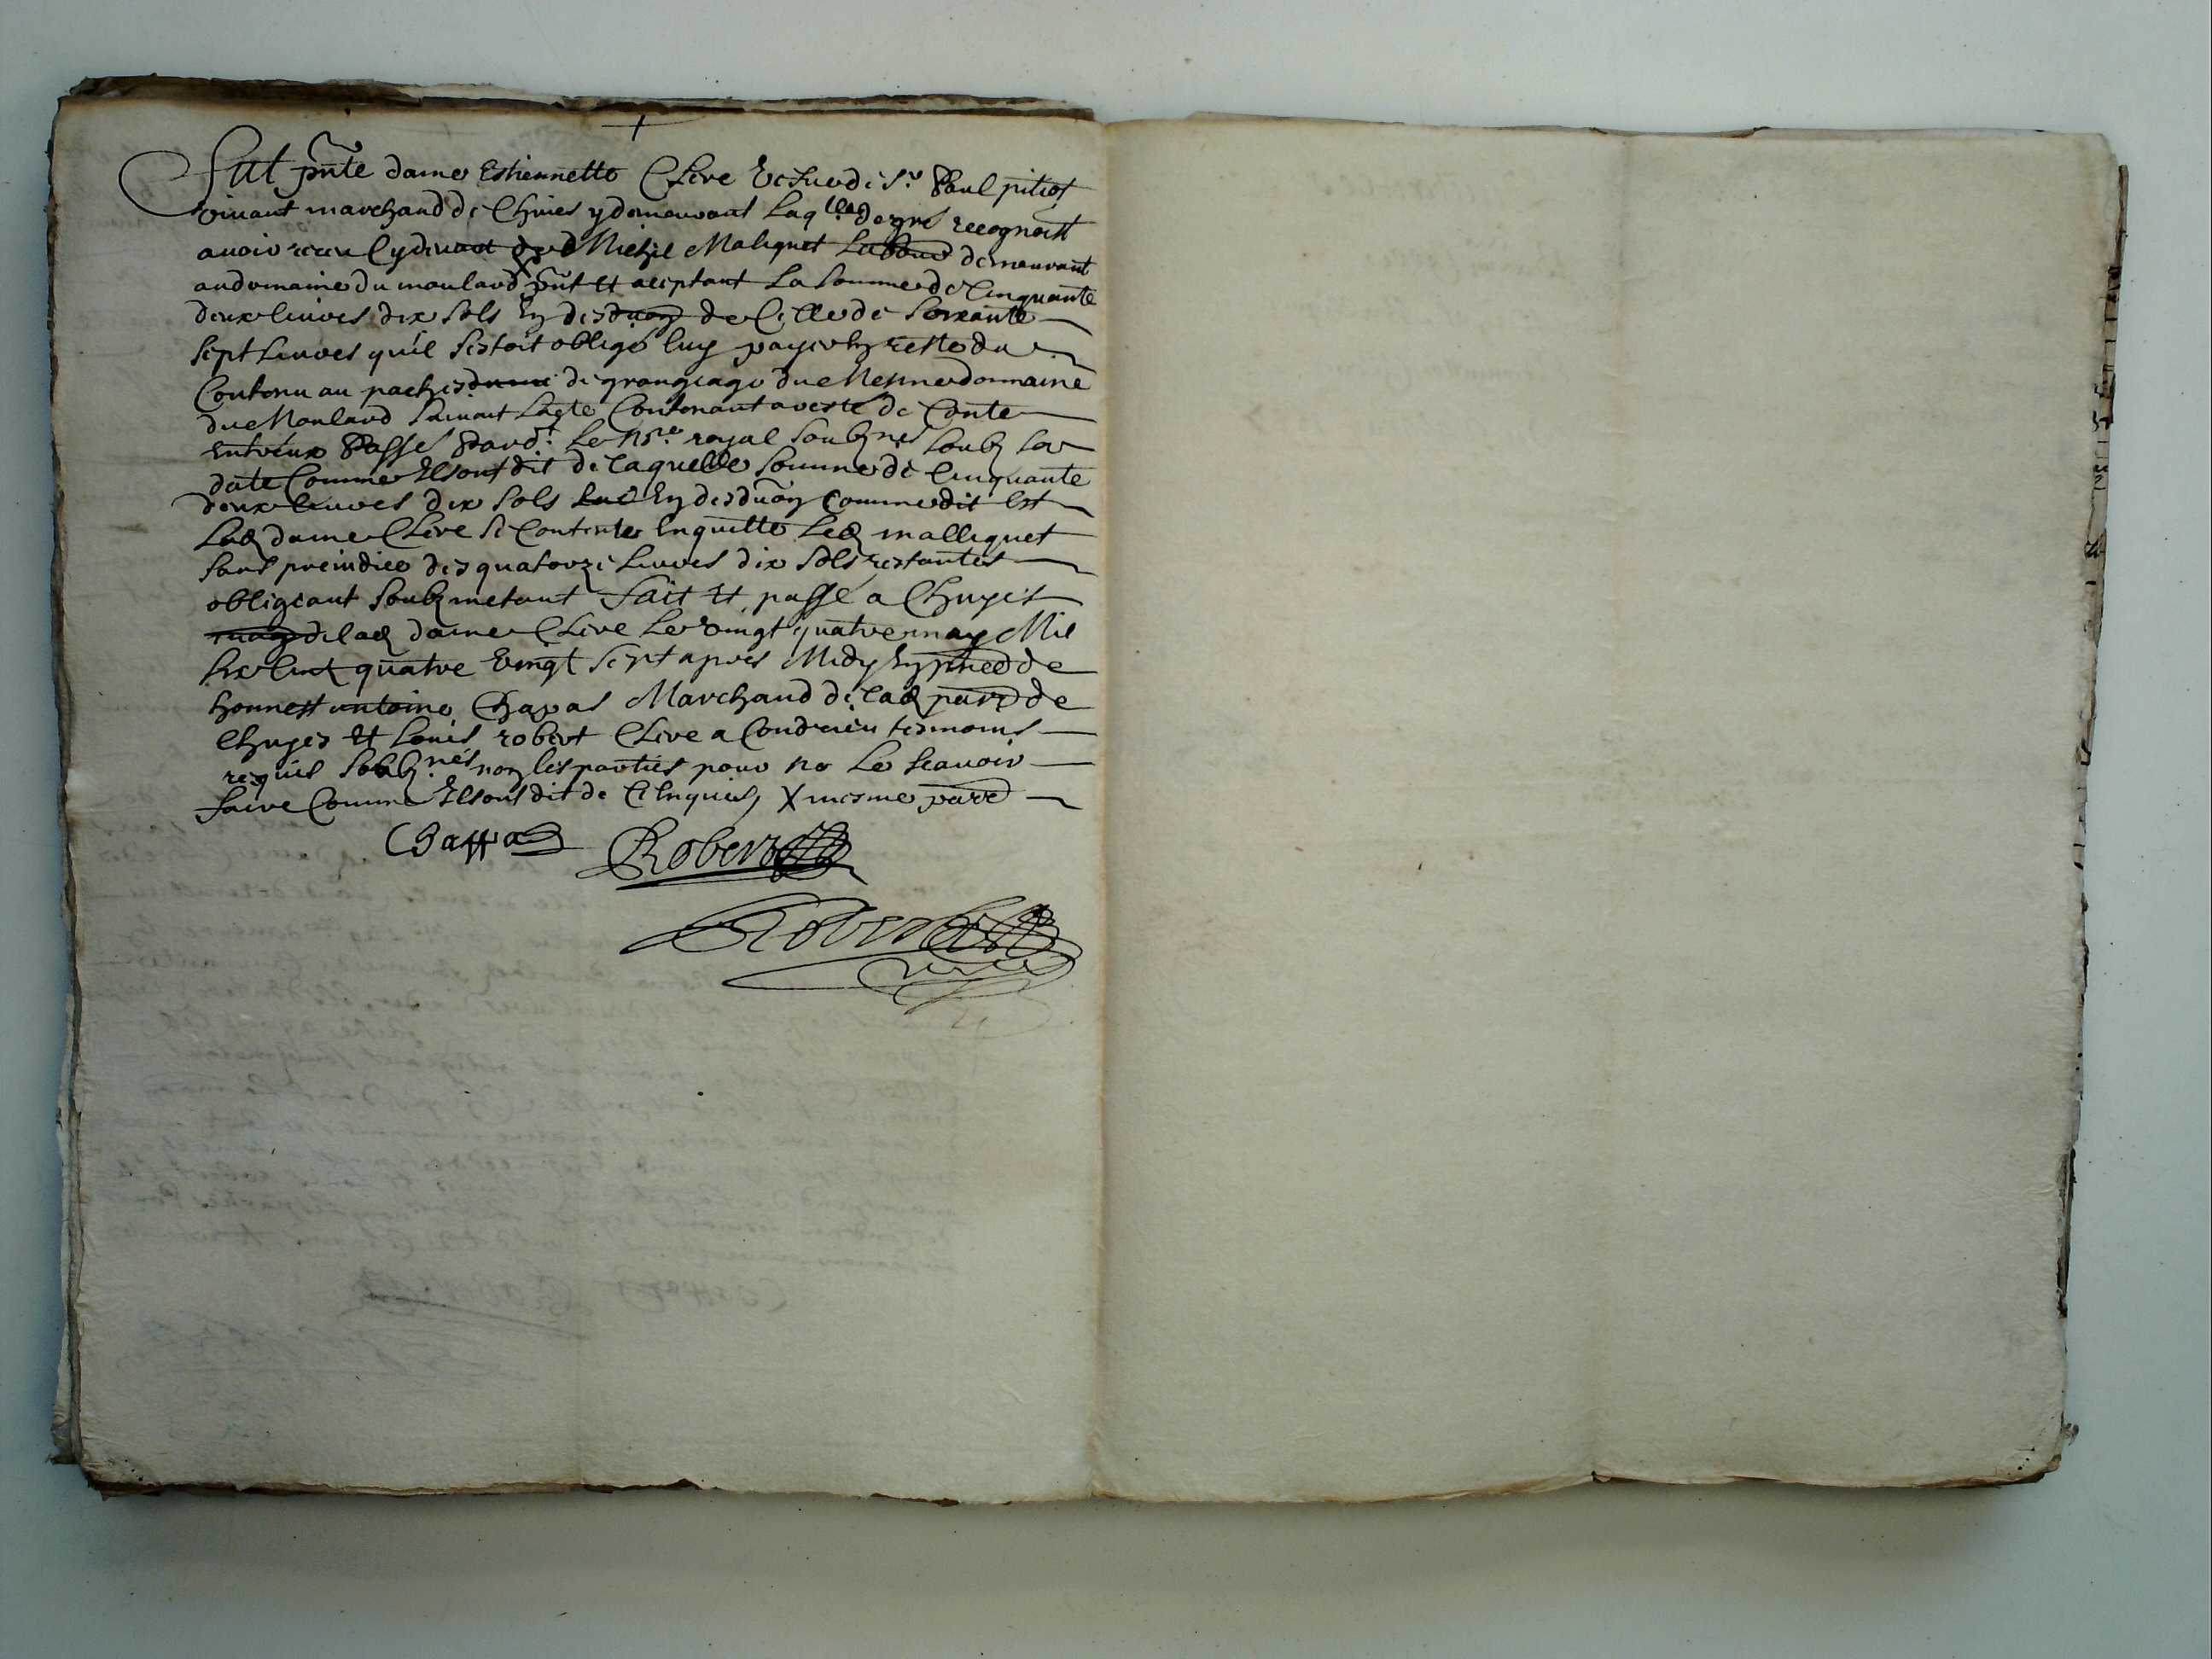 +
Fut pnte dame Estiennette Clere vefve de Sr Paul pitiot
vivant marchand de Chuies y demeurant laqlle de gré recognoist
avoir receu cydevant de Michel Maliquet demeurant
au domaine du moulard X pnt et aceptant la somme de Cinquante
deux livres dix sols en desduon de Celle de soixante
sept livres qu'il sestoit obligé luy payer en reste du
Contenu au paches de grangeage du mesme domaine
du Moulard suivant lacte Contenant areste de Conte
entreux Passé Pard.t le nore royal soubz.né soubz sa
date Comme Ils ont dit de laquelle somme de Cinquante
deux livres dix sols en desduon comme dit est
lad dame Clere se contente en quitte led malliquet
sans preiudice des quatorze livres dix sols restantes
obligeant soubzmetant fait et passé a Chuyes
maon de lad dame Clere le vingt quatre may Mil
six cent quatre vingt sept apres Midy en pnce de
honnest antoine Chapas Marchand de lad parr de
Chuyes et Louis robert Clere a Condrieu tesmoins
requis sobz.nés non les parties pour ne le scavoir
faire Comme Ils ont dit de ce enquis, X mesme parr
Chappas Robert
Robert